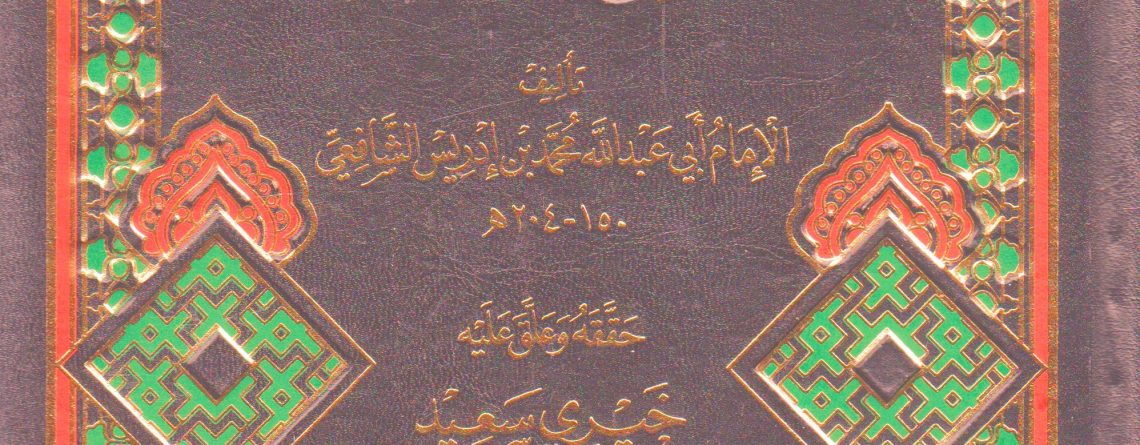 تَأليف
الْإِمَامُ أَبِي عَبْدِ اللَّه مُحَمَّد بْنِ إِدْرِيسَ الشَّافِعِيّ
١٥٠-٢٠٤هـ
حَقَّقَهُ وَعَلَّقَ عَلَيْه
خَيْرِي سَعِيْد